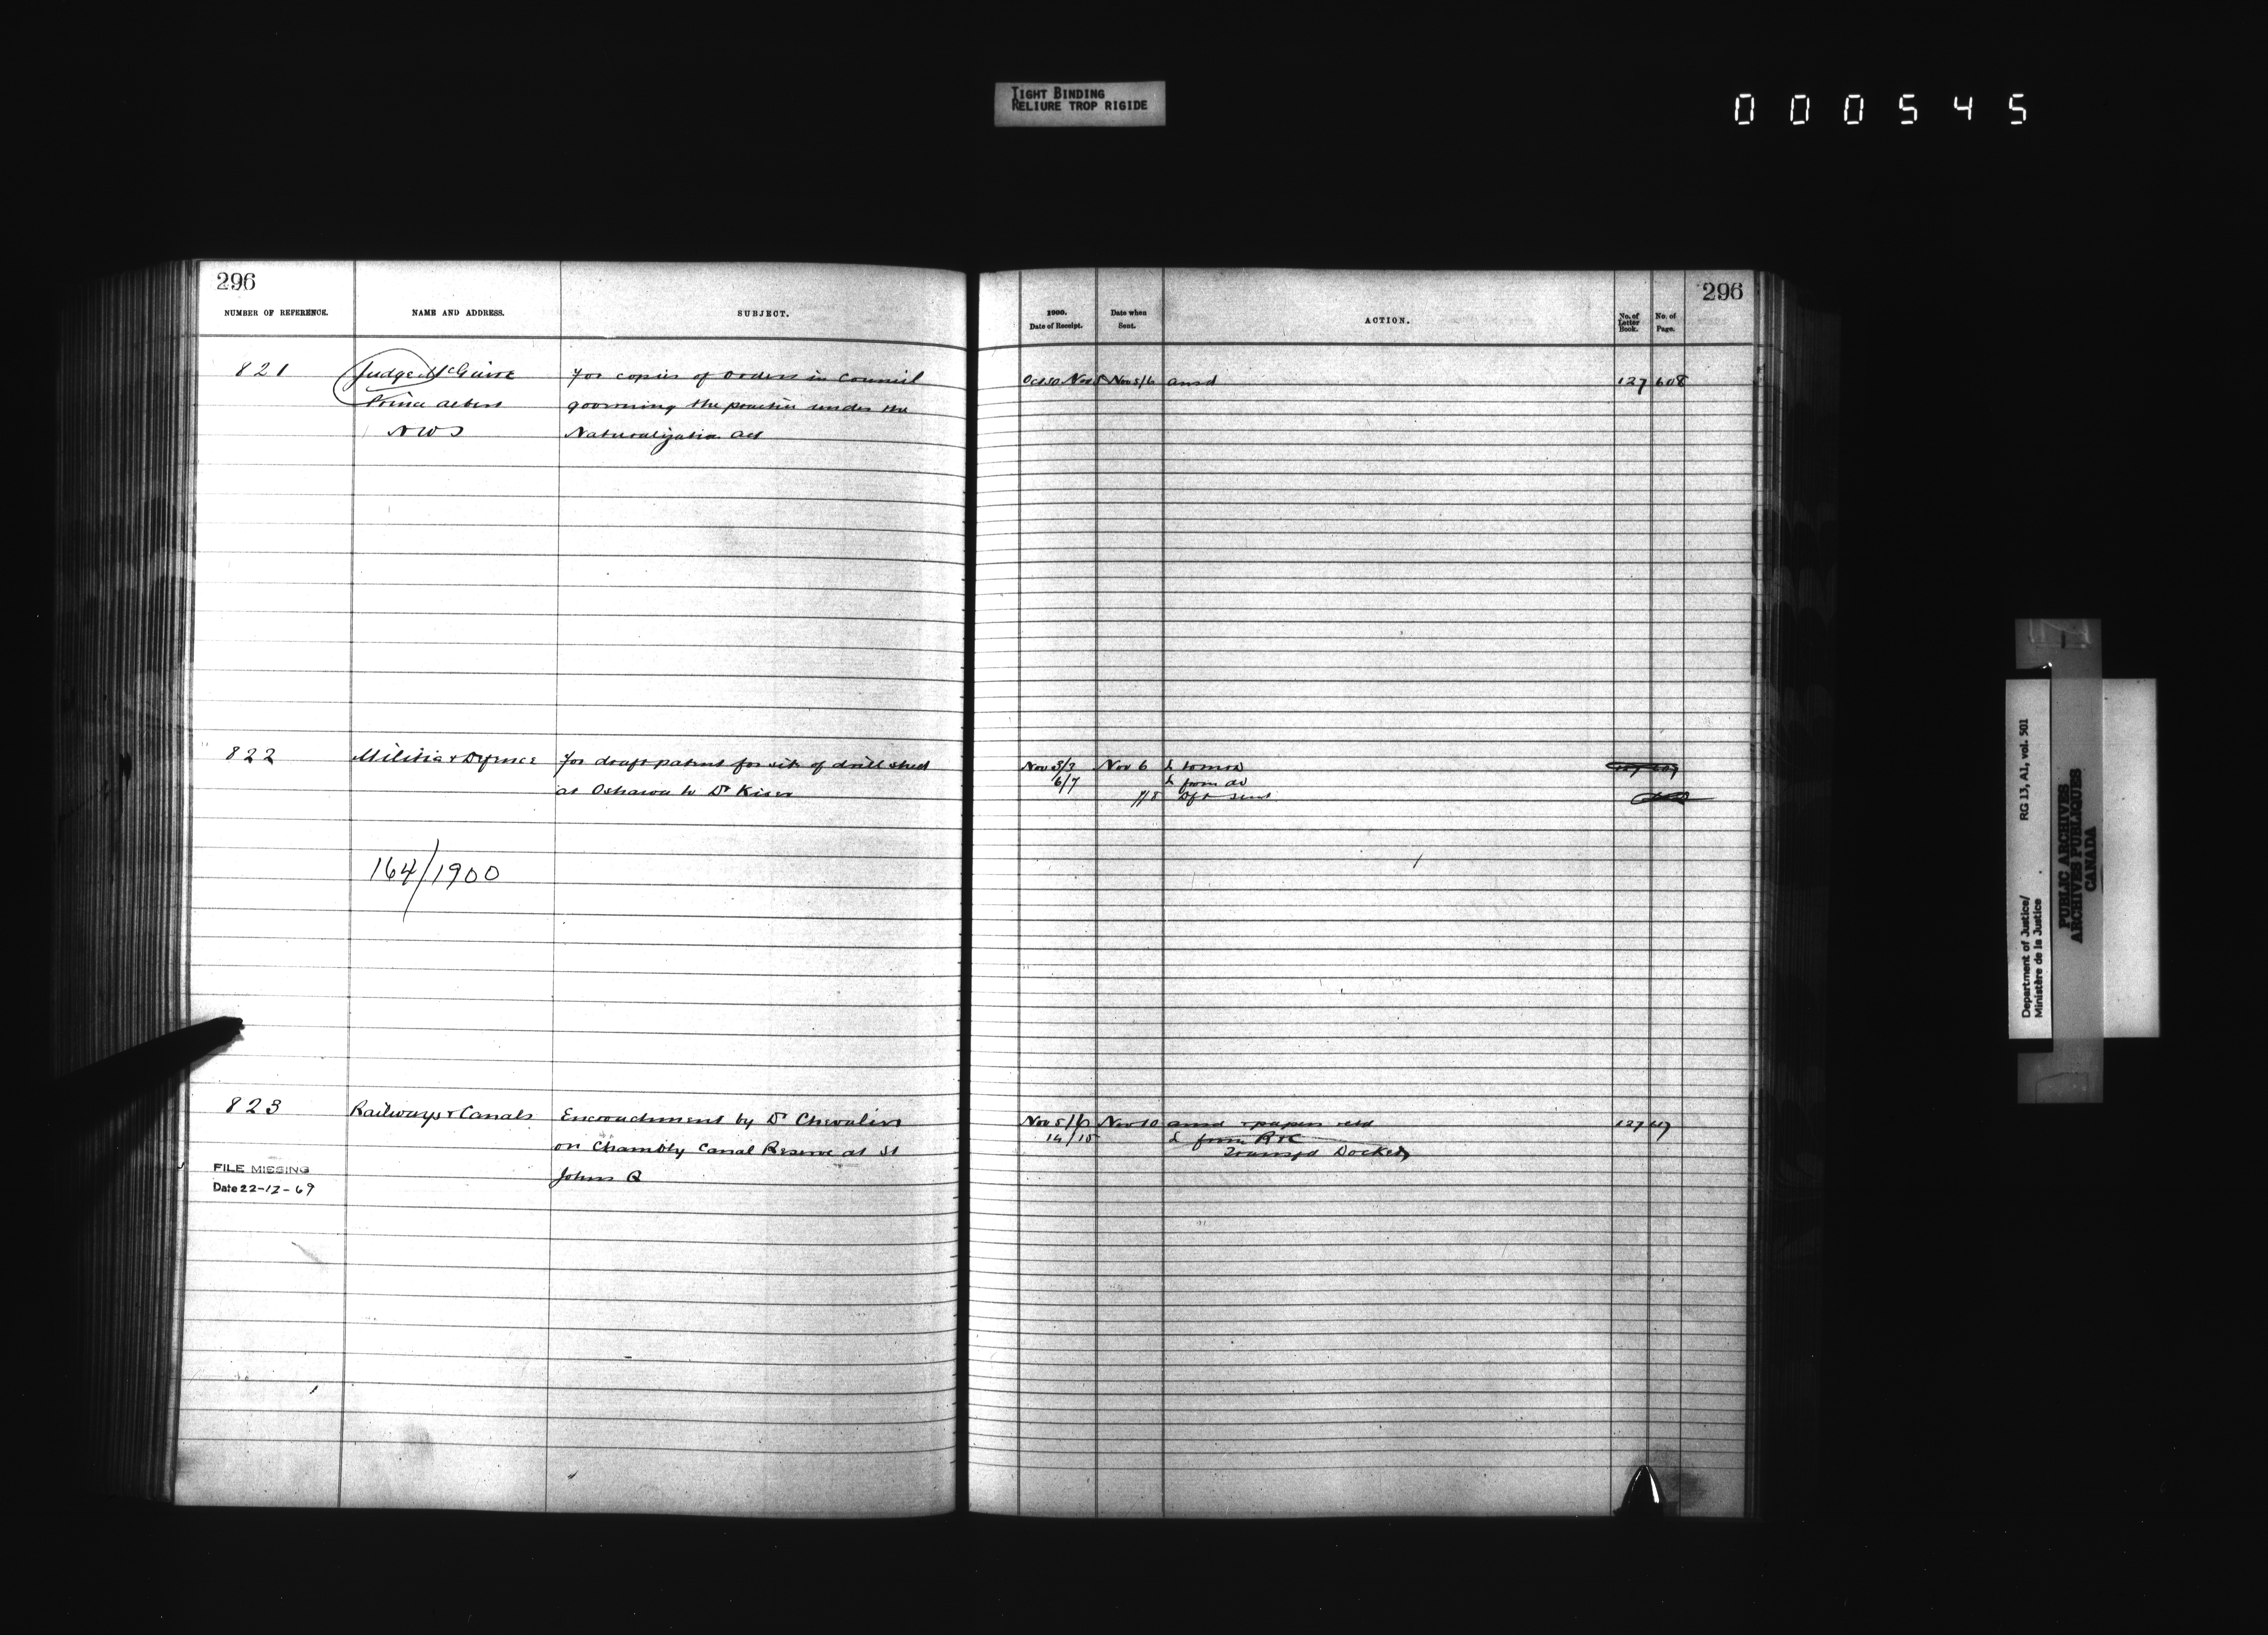 TIGHT BINDING
RELIURE TROP RIGIDE
000545
296
NUMBER OF REFERENCE. NAME AND ADDRESS. SUBJECT.
821 Judge McGuire for copies of Orders in Council
Prince Albert governing the practice under the
NWT Naturalization Act
822 Militia & Defence for draft patent for site of drill shed
at Oshawa to Dr
164/1900
823 Railways & Canals Encroachment by Dr Chevalier
on Chambly Canal Reserve at St
Johns Q
FILE MISSING
Date 22-12-69
296
1900. Date of Receipt. Date when Sent. ACTION. No. of Letter Book. No. of Page.
Oct 30 Nov 5 Nov 5/6 ansd 127 608
Nov 5/7 Nov 6 L
6/7 L from do
7/8 Dft sent
Nov 5/6 Nov 10 ansd & papers retd 127
14/15 L from R&C
Transfd Docket
Department of Justice/
Ministère de la Justice
RG 13, A1, vol. 501
PUBLIC ARCHIVES
ARCHIVES PUBLIQUES
CANADA